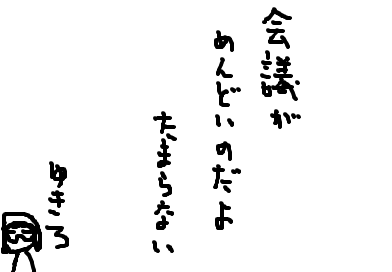 会議が
めんどいのだよ
たまらない
ゆきろ